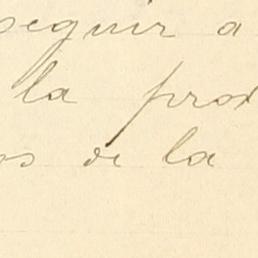 seguir a
la prox
os de la